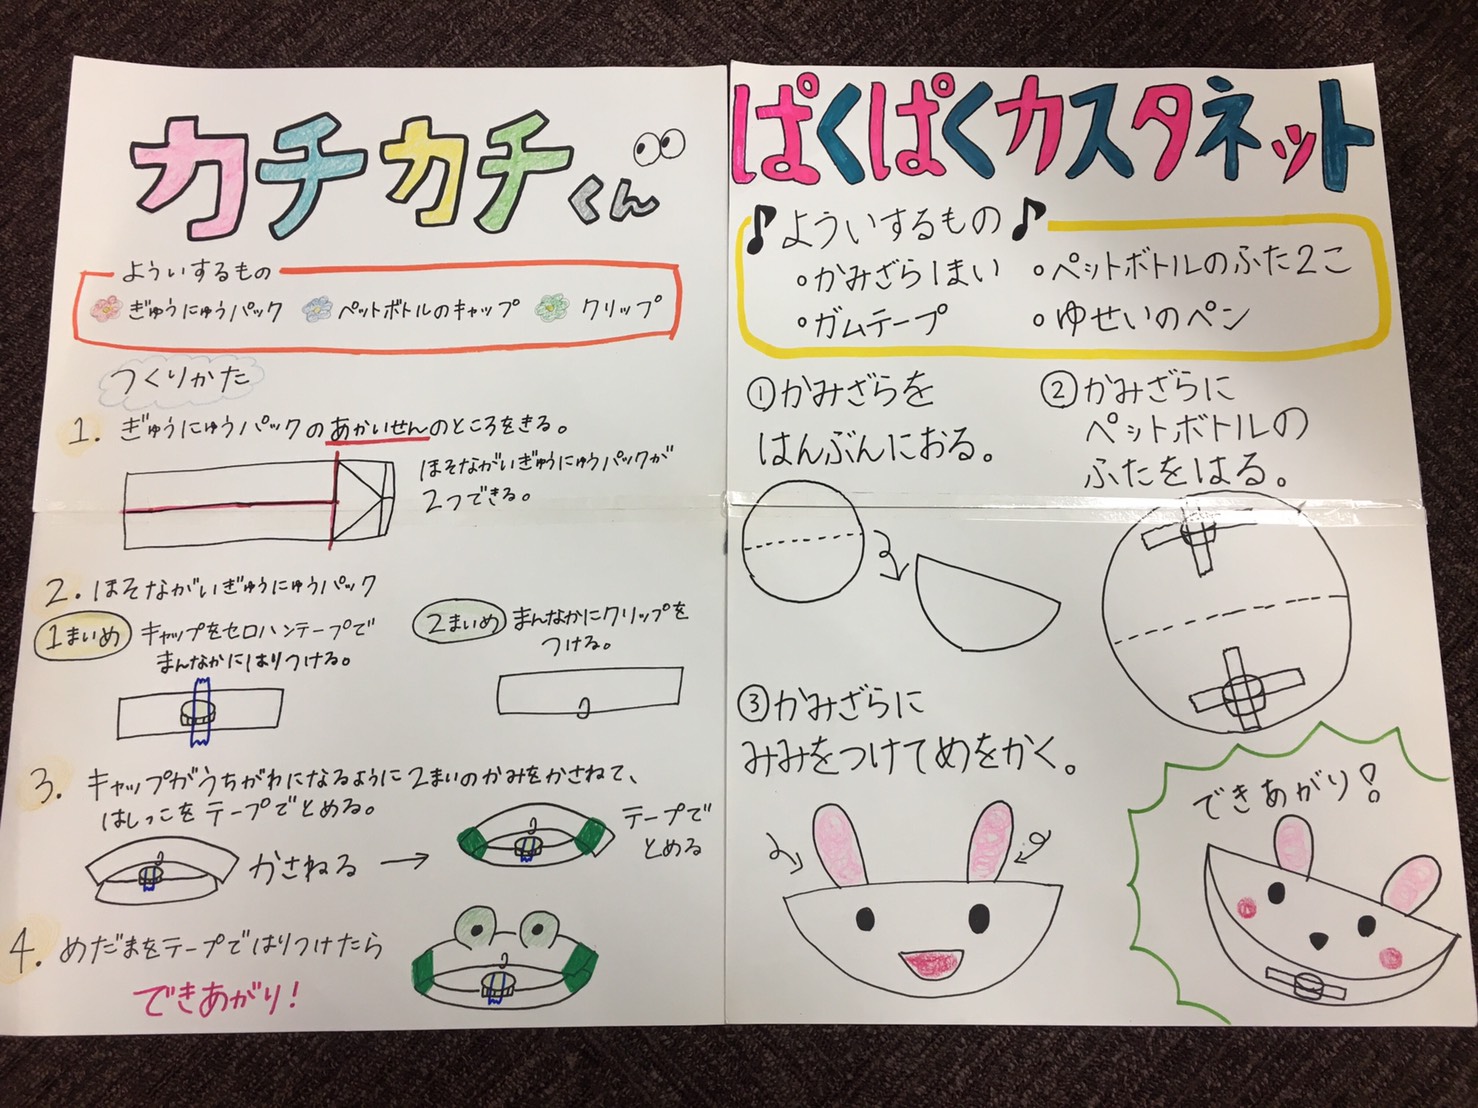 カチカチくん
よういするもの
ぎゅうにゅうパック ペットボトルのキャップ クリップ
つくりかた
1. ぎゅうにゅうパックのあかいせんのところをきる。
ほそながいぎゅうにゅうパックが
2つできる。
2. ほそながいぎゅうにゅうパック
1まいめ キャップをセロハンテープで
まんなかにはりつける。
2まいめ まんなかにクリップを
つける。
3. キャップがうちがわになるように2まいのかみをかさねて、
はしっこをテープでとめる。
かさねる → テープで
とめる
4. めだまをテープではりつけたら
できあがり!
ぱくぱくカスタネット
♪よういするもの♪
・かみざら1まい ・ペットボトルのふた2こ
・ガムテープ ・ゆせいのペン
①かみざらを
はんぶんにおる。
②かみざらに
ペットボトルの
ふたをはる。
③かみざらに
みみをつけてめをかく。
できあがり!